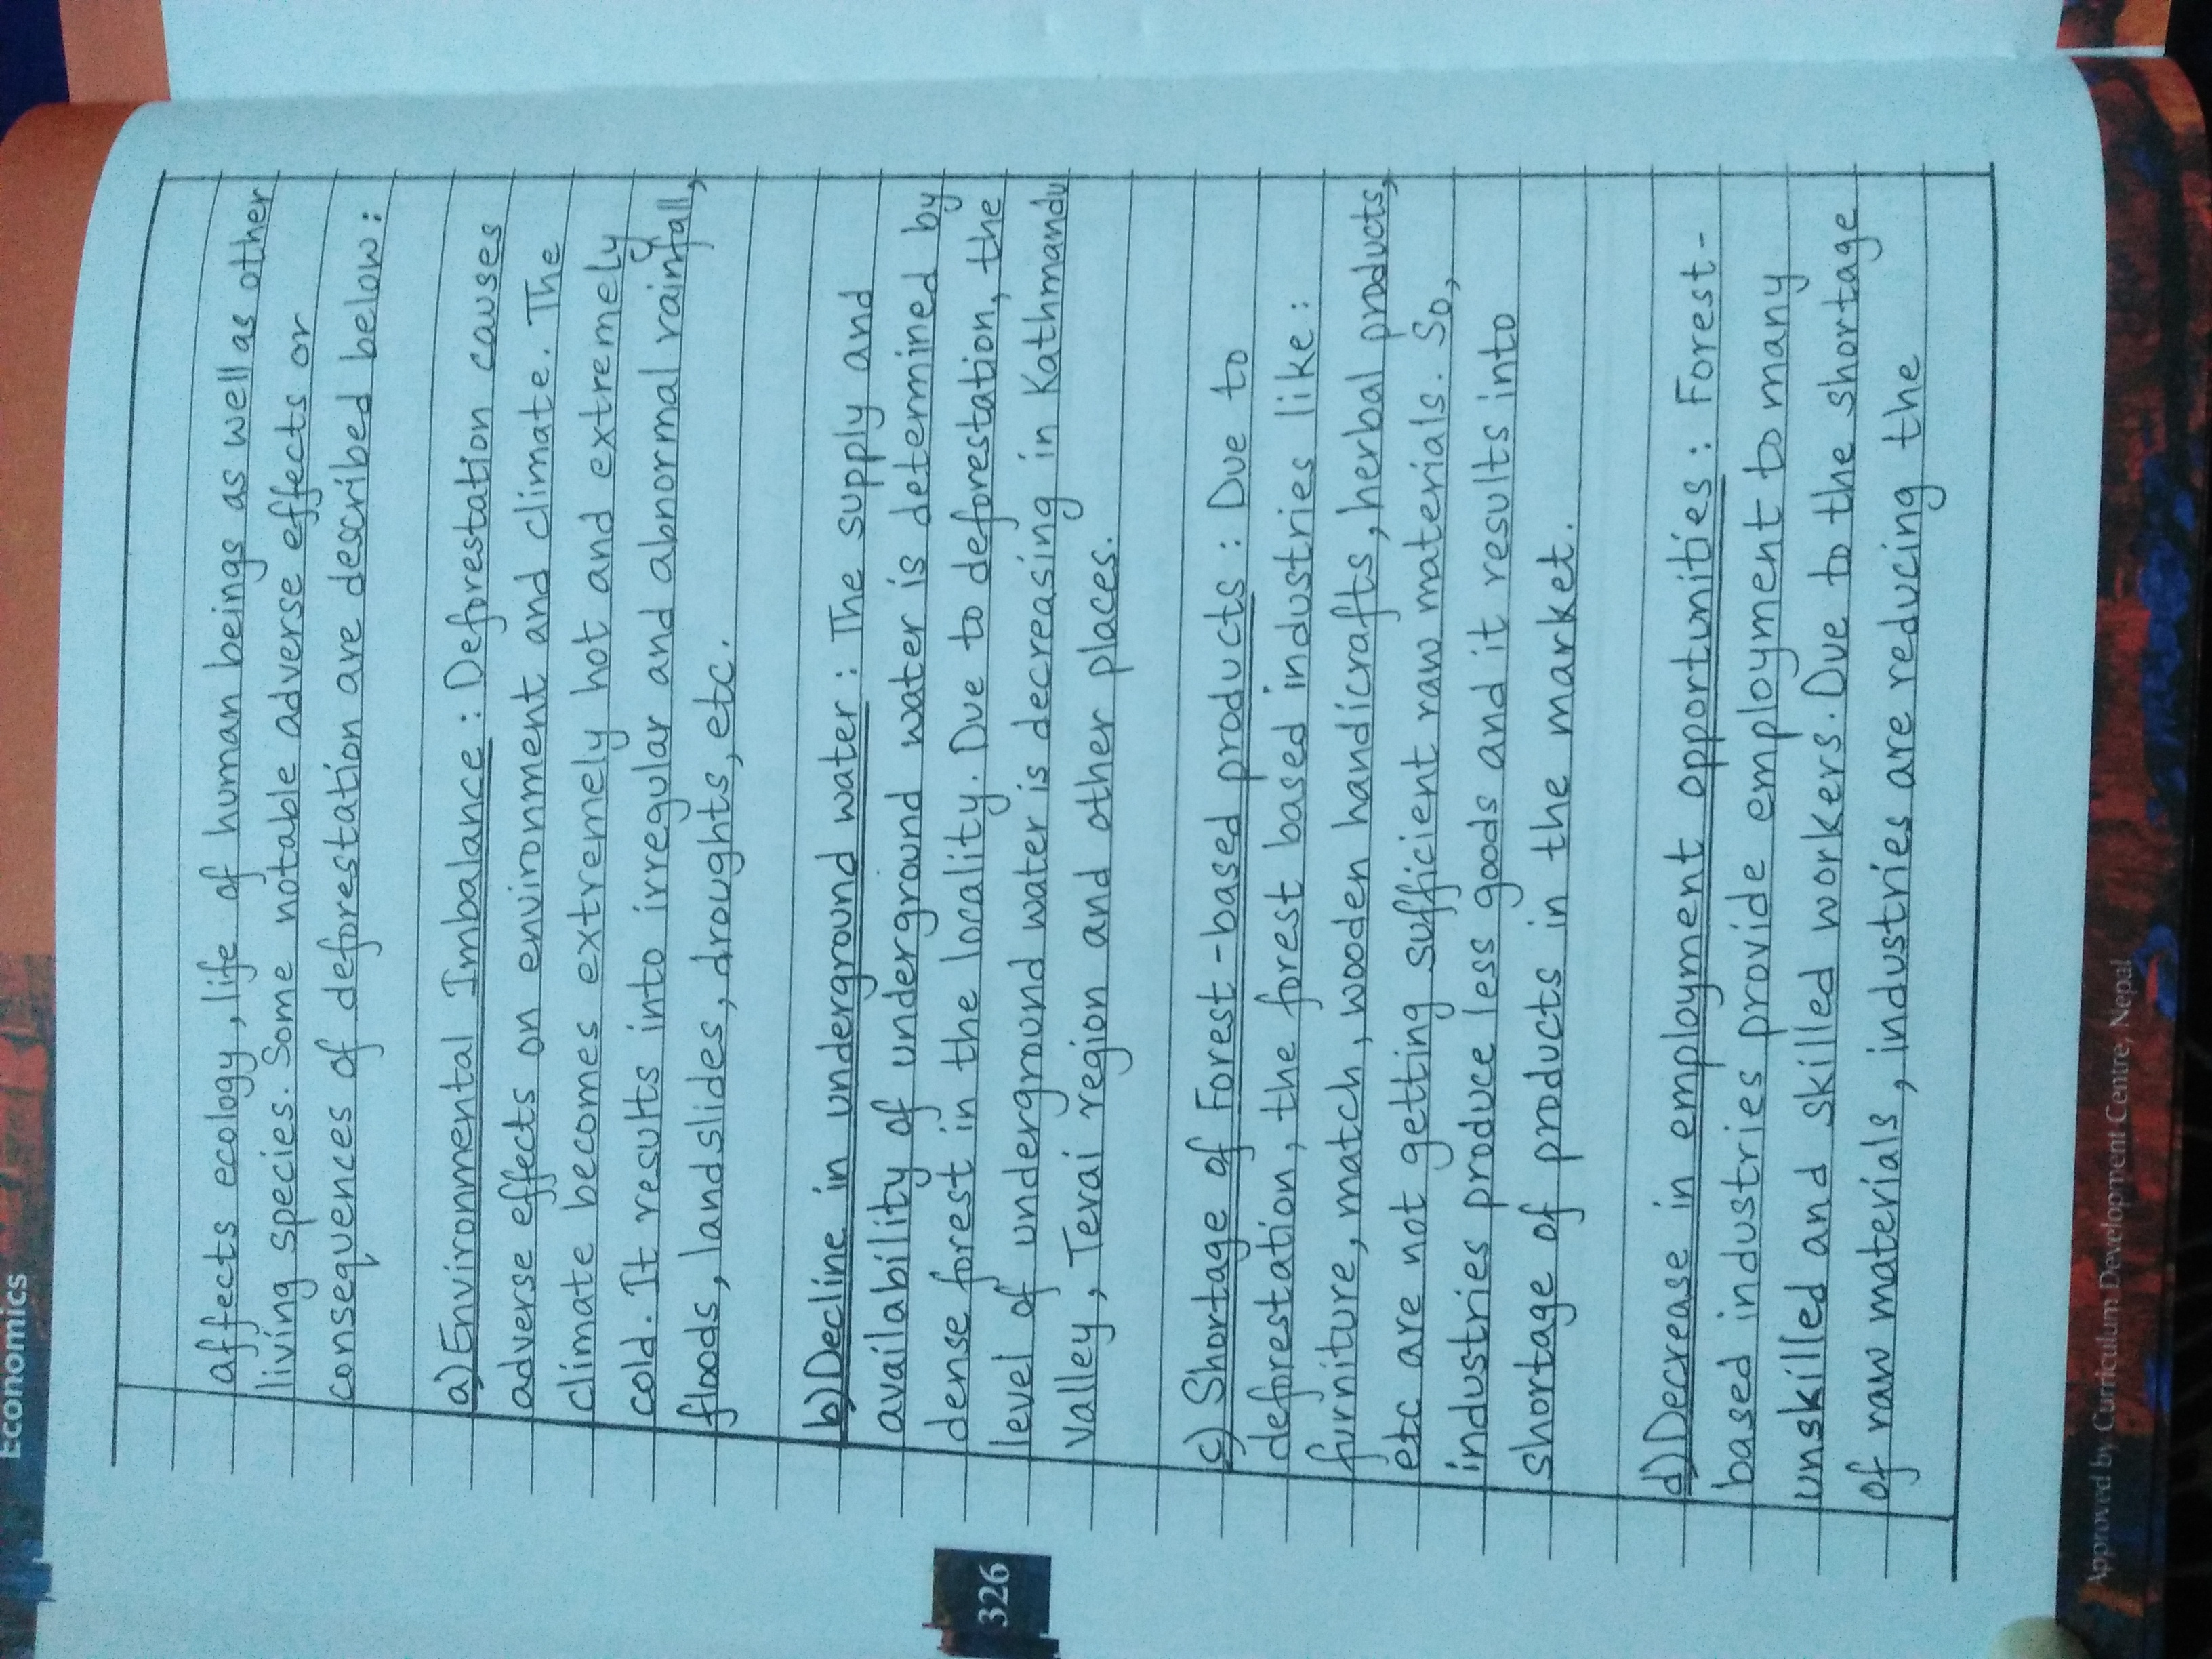 Economics
affects ecology, life of human beings as well as other
living species. Some notable adverse effects or
consequences of deforestation are described below:
a) Environmental Imbalance: Deforestation causes
adverse effects on environment and climate. The
climate becomes extremely hot and extremely
cold. It results into irregular and abnormal rainfall,
floods, landslides, droughts, etc.
b) Decline in underground water: The supply and
availability of underground water is determined by
dense forest in the locality. Due to deforestation, the
level of underground water is decreasing in Kathmandu
Valley, Terai region and other places.
c) Shortage of Forest-based products: Due to
deforestation, the forest based industries like:
furniture, match, wooden handicrafts, herbal products,
etc are not getting sufficient raw materials. So,
industries produce less goods and it results into
shortage of products in the market.
d) Decrease in employment opportunities: Forest-
based industries provide employment to many
unskilled and skilled workers. Due to the shortage
of raw materials, industries are reducing the
326
Approved by Curriculum Development Centre, Nepal